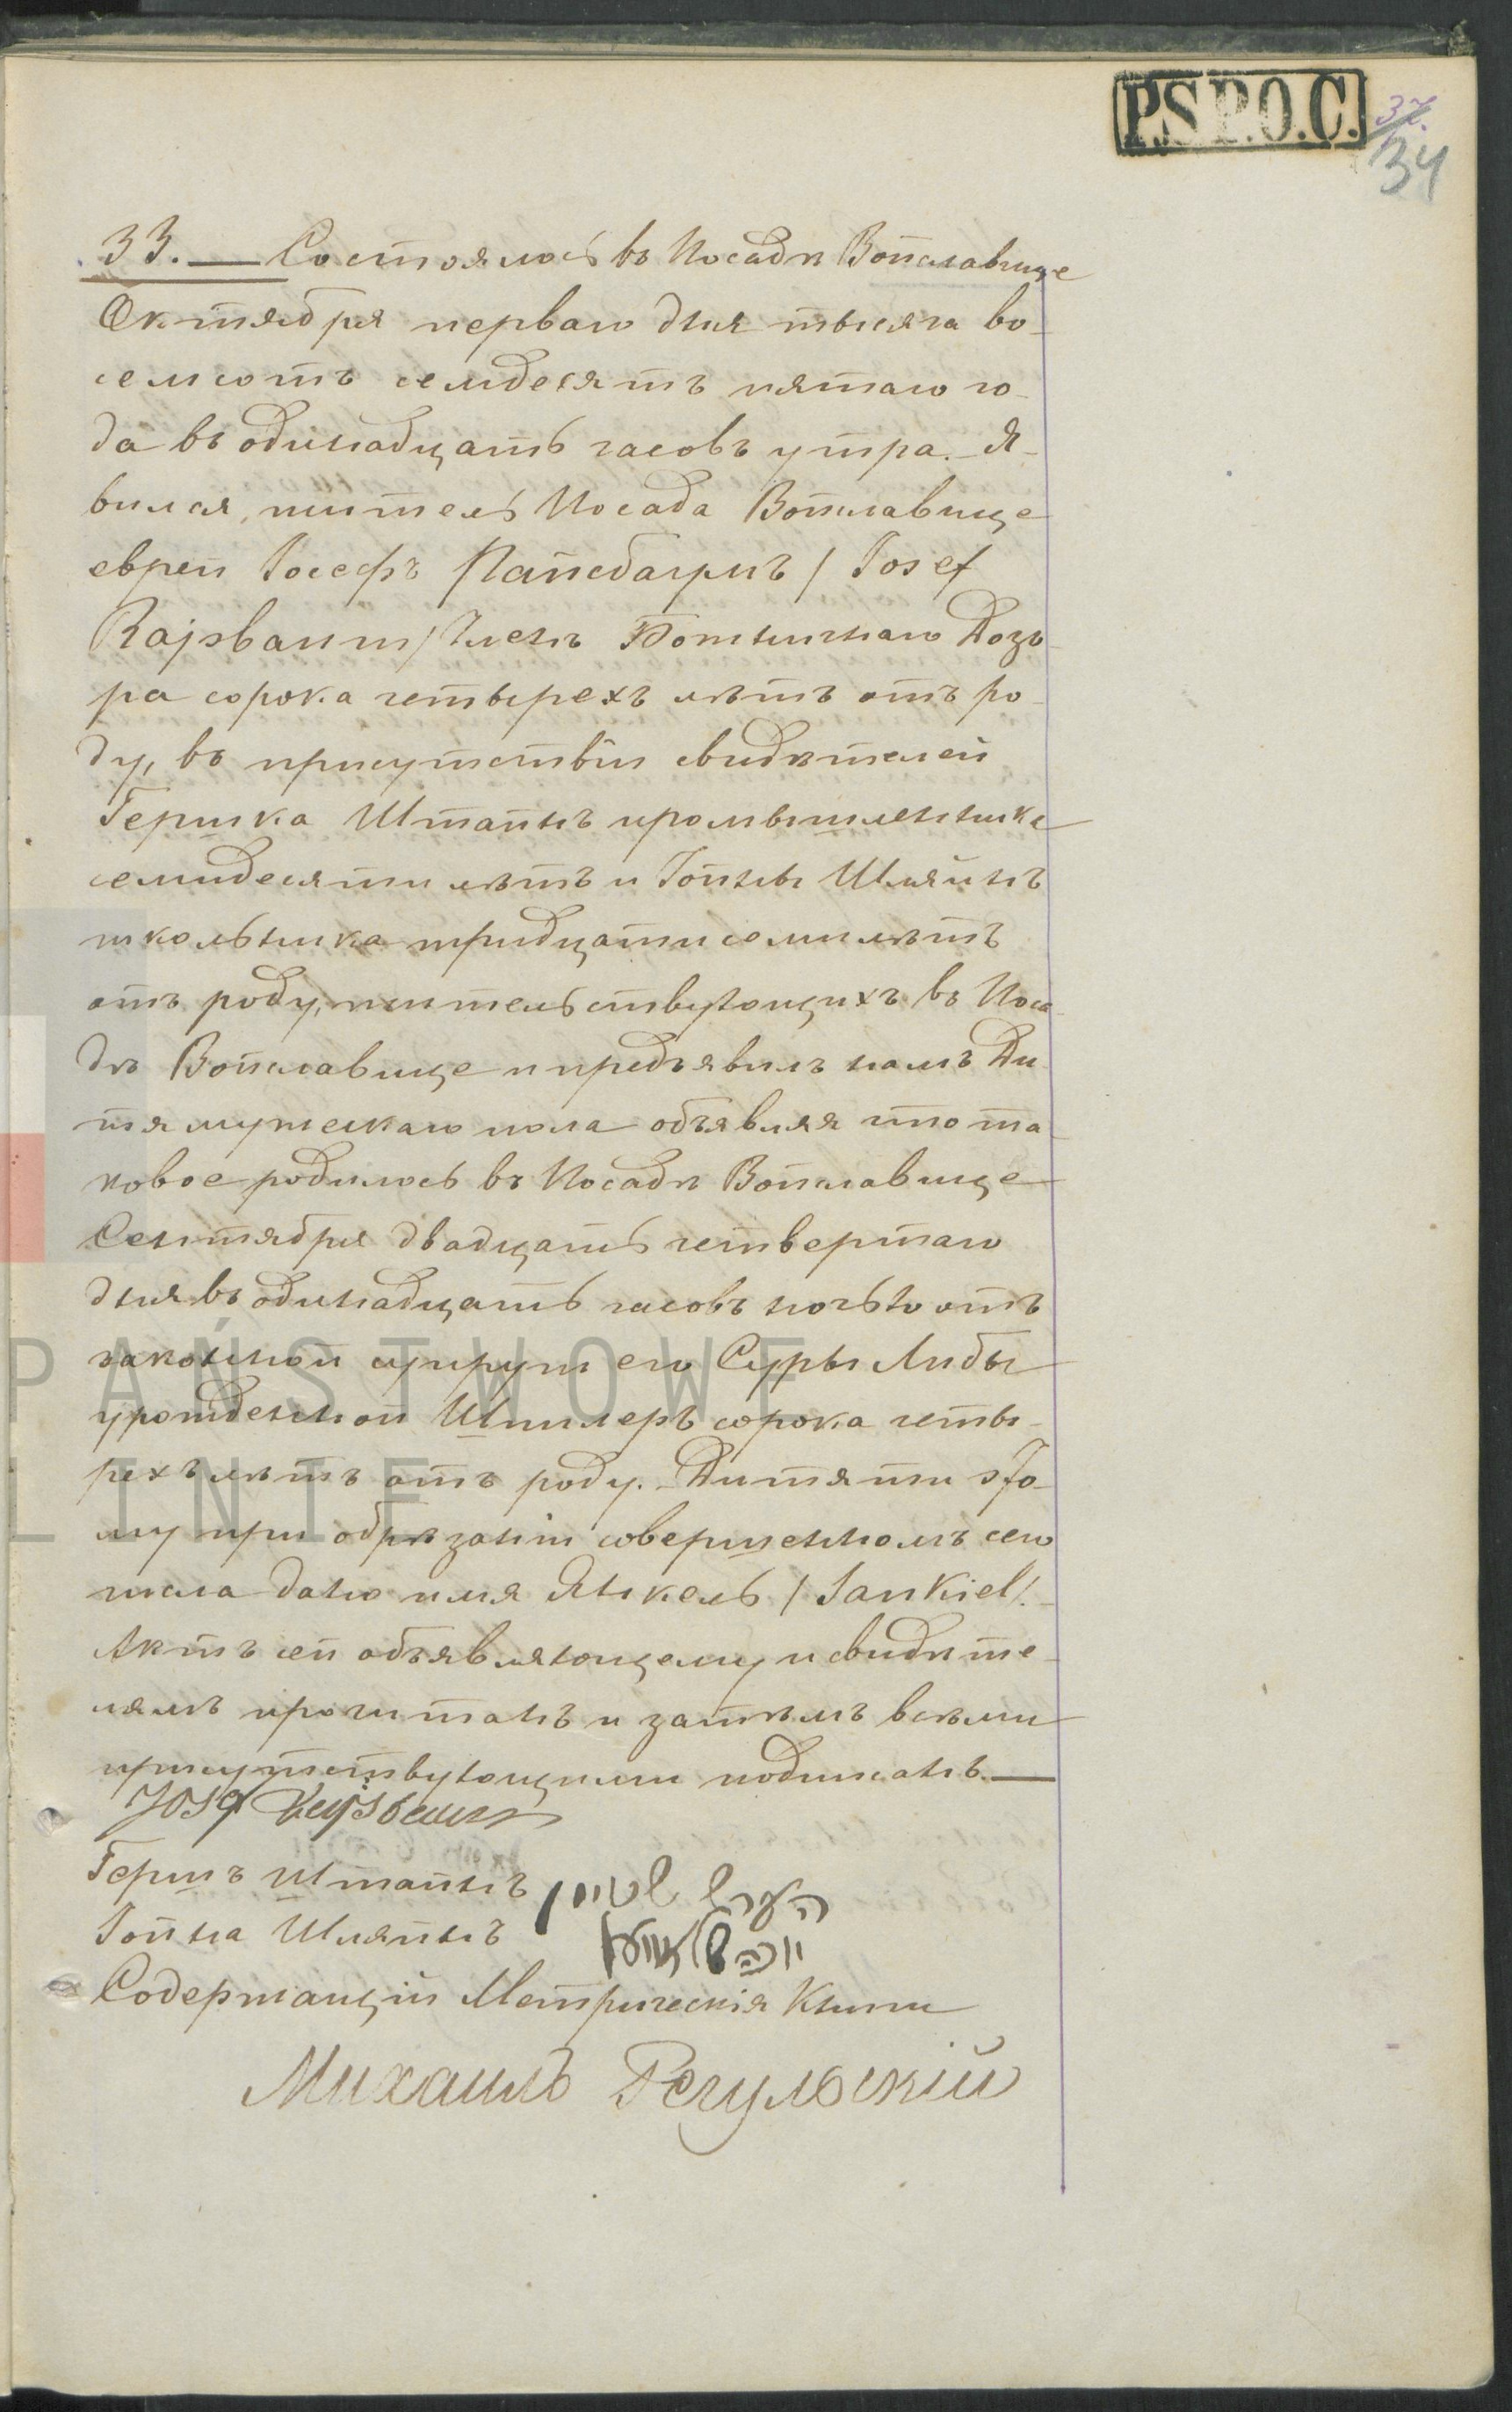 P.S P.O.C.
37.
34
33. — Состоялось въ Посадѣ Войславице
Октября перваго дня тысяча во-
семсотъ семдесятъ пятаго го-
да въ одинадцать часовъ утра. Я-
вился, житель Посада Войславице
еврей Іосефъ Райсбаумъ / Josef
Rajsbaum / Членъ Божничнаго Дозо-
ра сорока четырехъ лѣтъ отъ ро-
ду, въ присутствіи свидѣтелей
Гершка Штайнъ промышленника
семидесяти лѣтъ и Іойны Шляйнъ
школьника тридцати семи лѣтъ
отъ роду, жительствующихъ въ Поса-
дѣ Войславице и предъявилъ намъ Ди-
тя мужескаго пола объявляя что та-
ковое родилось въ Посадѣ Войславице
Сентября двадцать четвертаго
дня въ одинадцать часовъ ночью отъ
законной супруги его Суры Либы
урожденной Шпилеръ сорока четы-
рехъ лѣтъ отъ роду. Дитяти это-
му при обрѣзаніи совершенномъ сего
числа дано имя Янкель / Jankiel /.
Актъ сей объявляющему и свидѣте-
лямъ прочитанъ и затѣмъ всѣми
присутствующими подписанъ. —
Josef Rajsbaum
Гершъ Штайнъ הערש שטיין
Іойна Шляйнъ
Содержащій Метрическія Книги
Михаилъ Регульскій
PAŃSTWOWE
LINIE